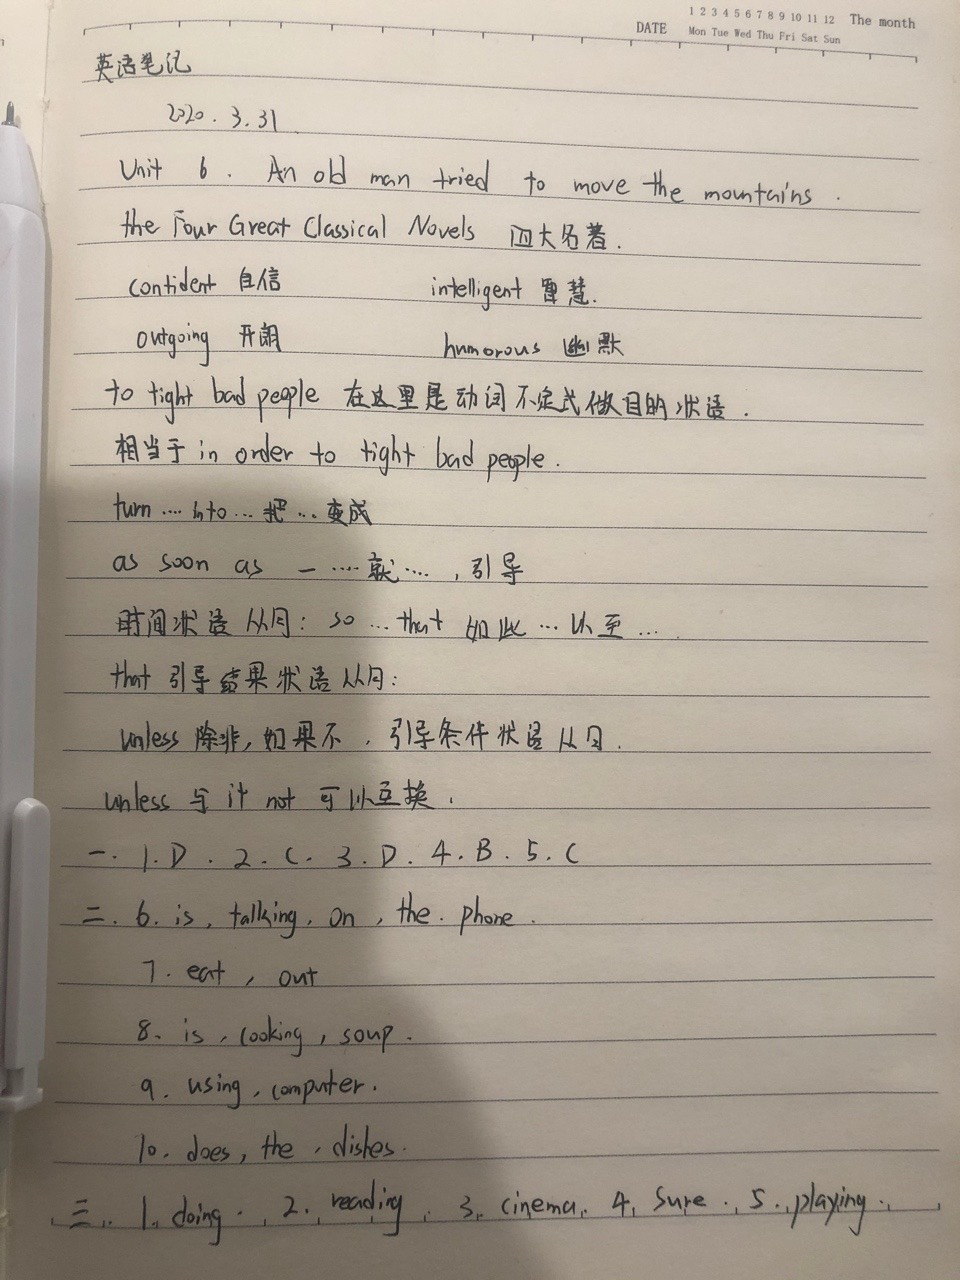 1 2 3 4 5 6 7 8 9 10 11 12 The month
DATE Mon Tue Wed Thu Fri Sat Sun
英语笔记
2020.3.31
Unit 6. An old man tried to move the mountains.
the Four Great Classical Novels 四大名著.
confident 自信 intelligent 智慧.
outgoing 开朗 humorous 幽默
to fight bad people 在这里是动词不定式做目的状语.
相当于 in order to fight bad people.
turn … into … 把 … 变成
as soon as 一 …… 就 ……, 引导
时间状语从句: so … that 如此 … 以至 …
that 引导结果状语从句:
unless 除非, 如果不, 引导条件状语从句.
unless 与 if not 可以互换.
一. 1. D. 2. C. 3. D. 4. B. 5. C
二. 6. is, talking, on, the. phone.
7. eat, out
8. is, cooking, soup.
9. using, computer.
10. does, the, dishes.
三. 1. doing. 2. reading. 3. cinema. 4. Sure. 5. playing.